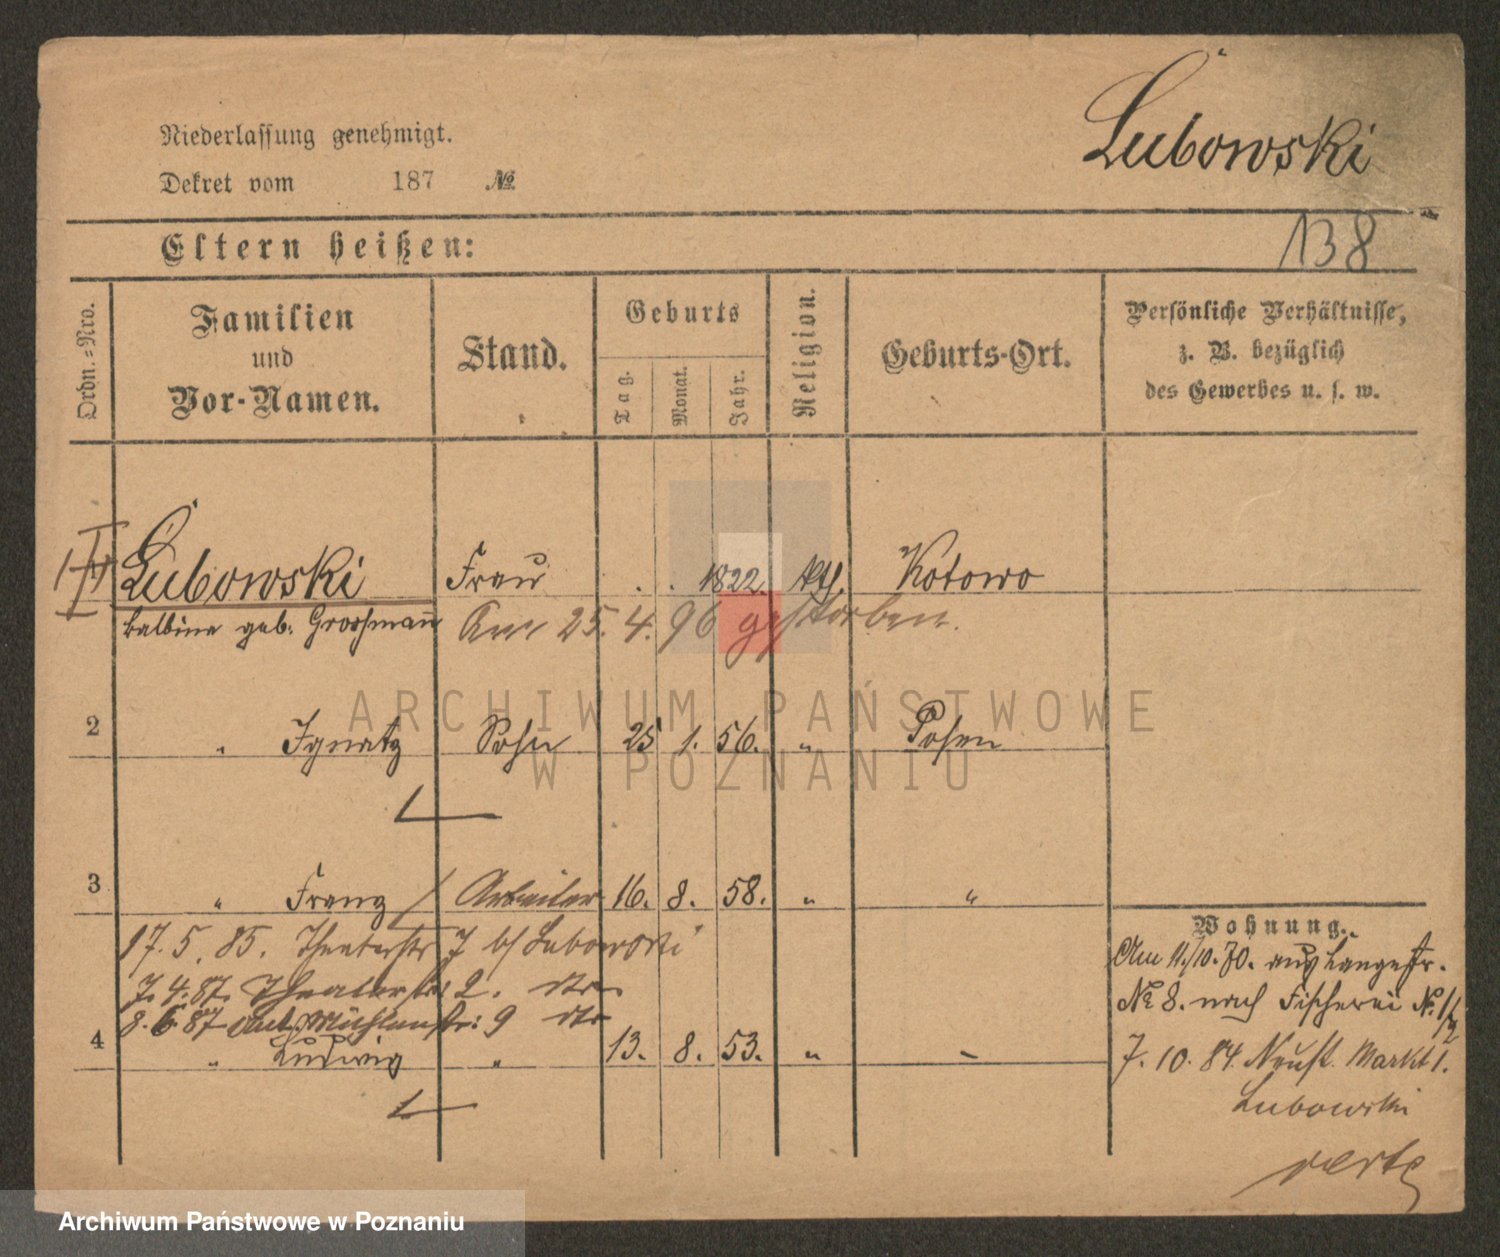 Lubowski
Niederlassung genehmigt.
Dekret vom 187 №
138
Eltern heißen:
Ordn.=Nro.
Familien
und
Vor-Namen.
Stand.
Geburts
Tag.
Monat.
Jahr.
Religion.
Geburts-Ort.
Persönliche Verhältnisse,
z. B. bezüglich
des Gewerbes u. s. w.
Lubowski Frau . . 1822. kth Kotowo
Balbina geb. Grossmann
Am 25.4.96 gestorben.
2 " Ignatz Sohn 25 1. 56. " Posen
3 " Franz Arbeiter 16. 8. 58. " "
17.5.85. Theaterstr 7 b/ Lubowski
7.4.87. Theaterstr 2. dto
8.6.87 Mühlenstr: 9 dto
4 " Ludwig " 13. 8. 53. " "
Wohnung.
Am 11./10.70. aus Langestr.
No 8. nach Fischerei No. 1/2
7.10.84. Neust. Markt 1.
Lubowski
verte
ARCHIWUM PAŃSTWOWE
W POZNANIU
Archiwum Państwowe w Poznaniu